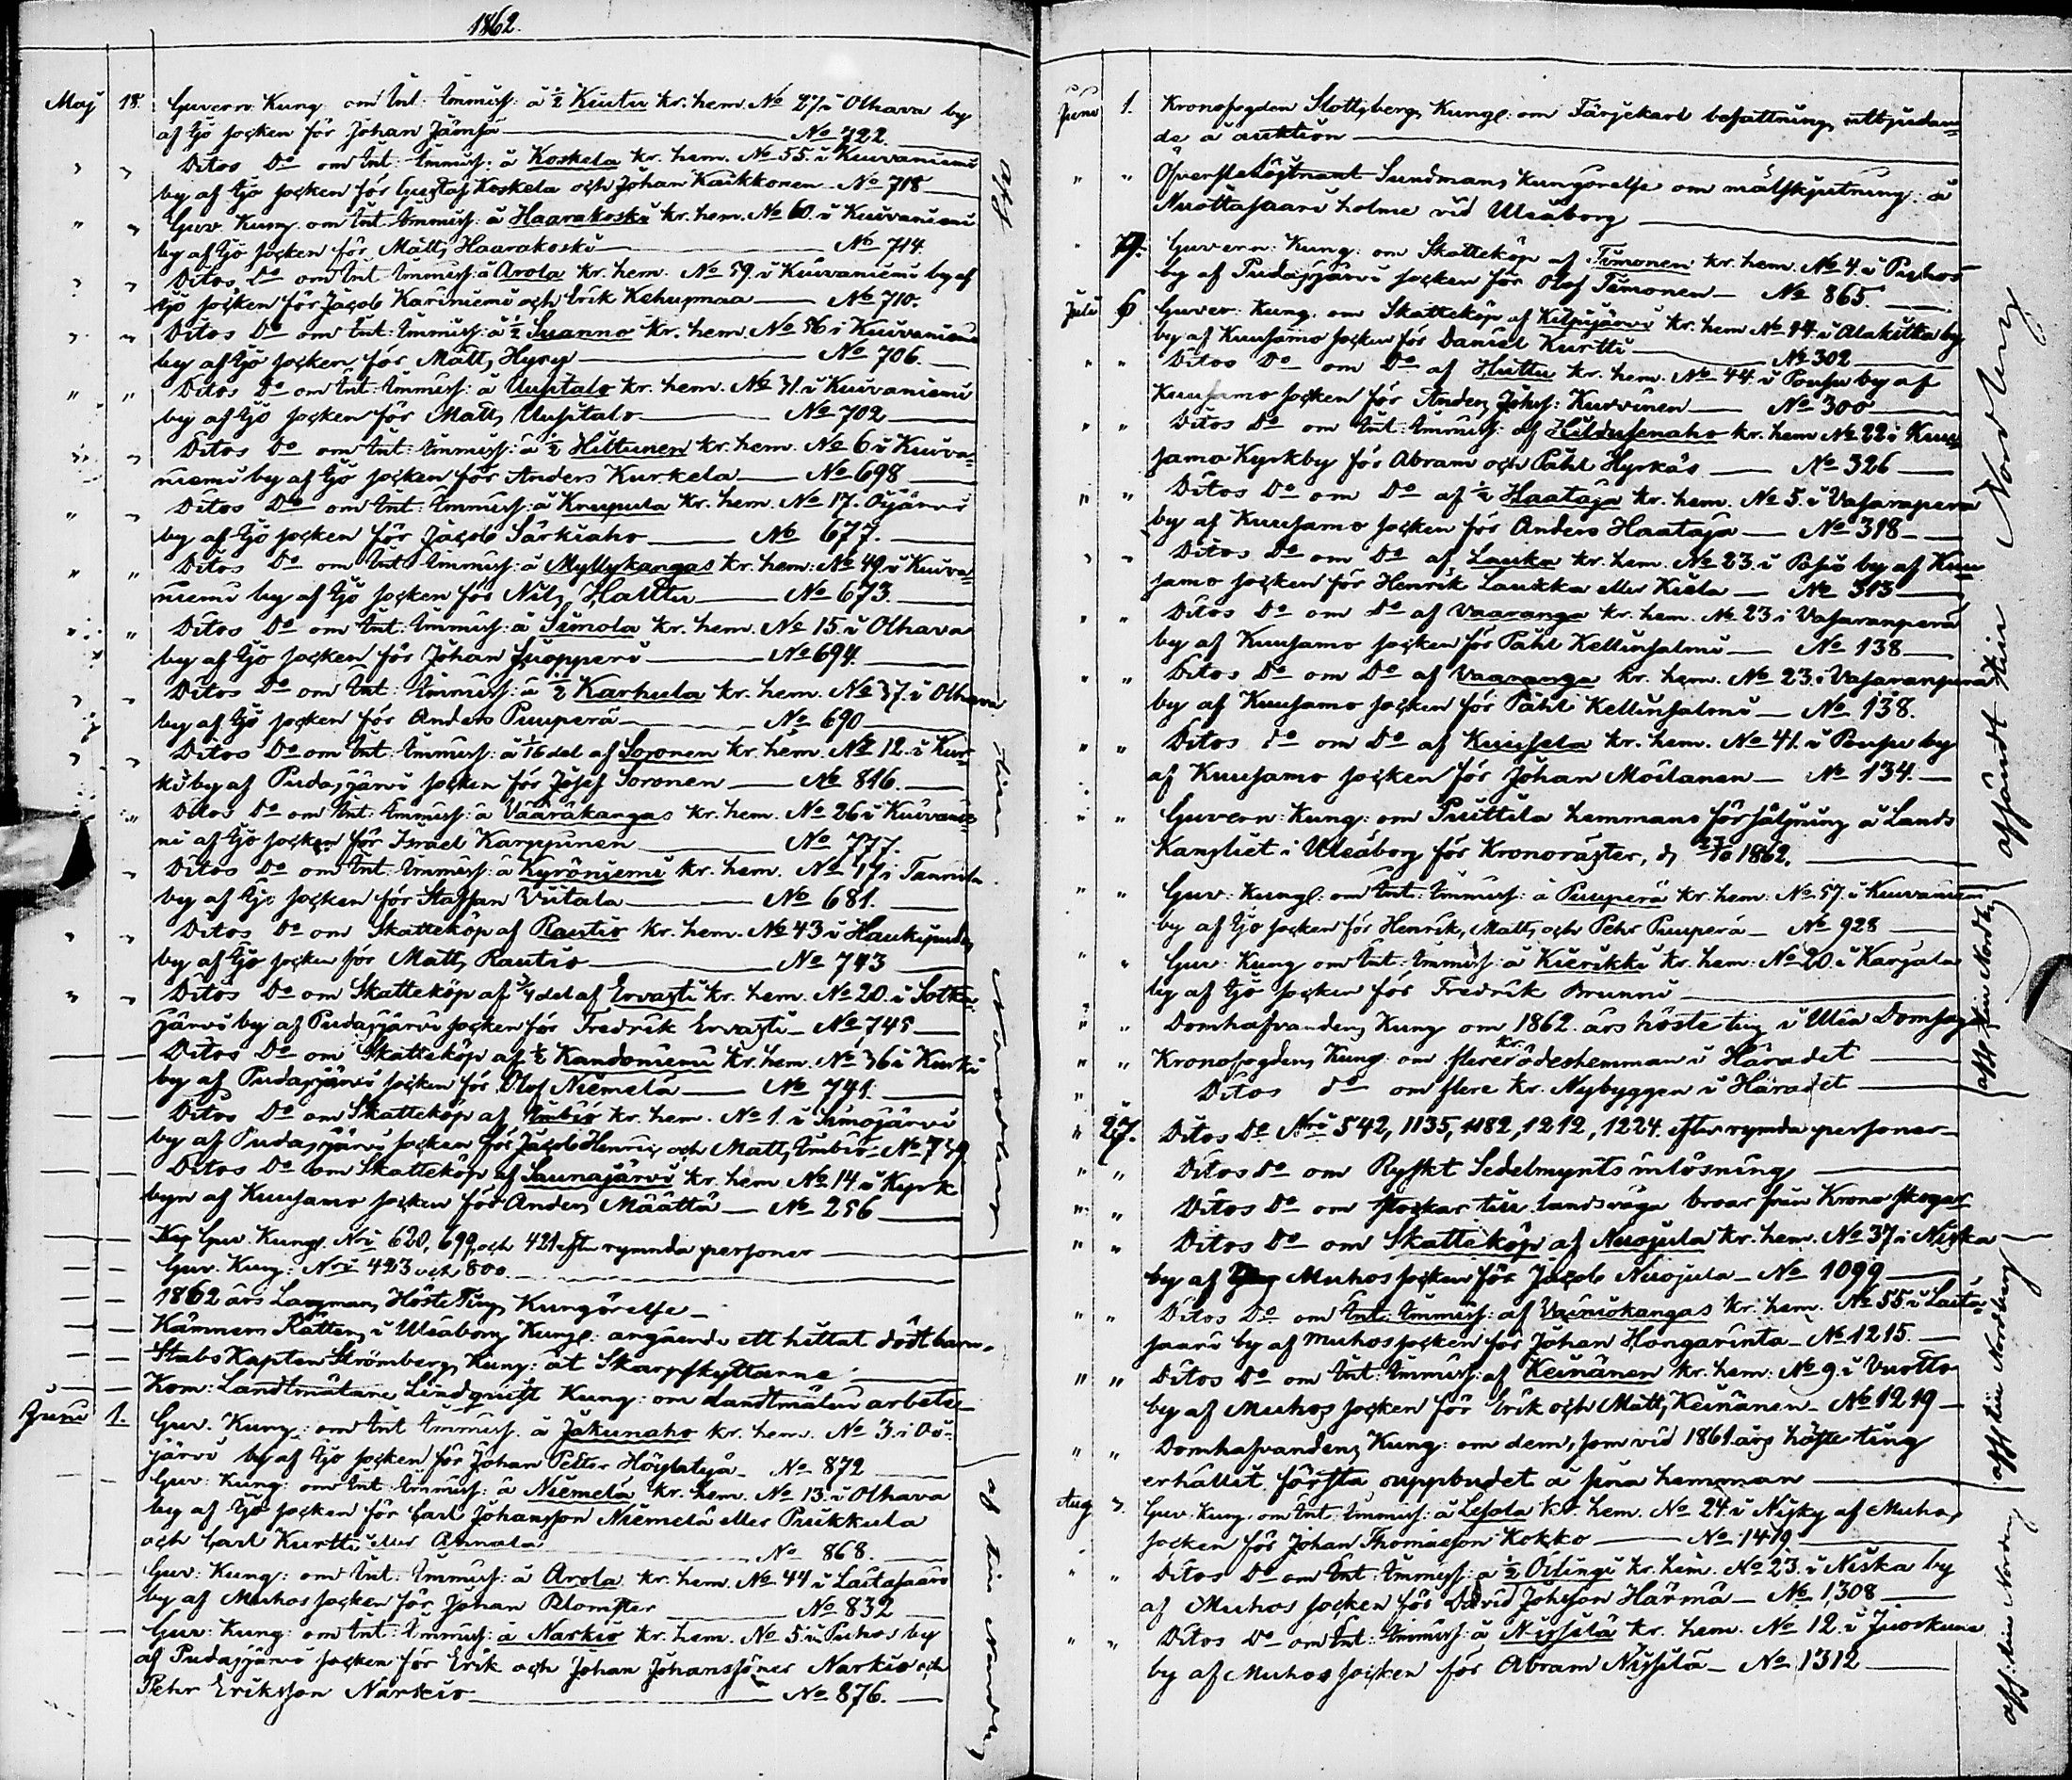 1862.
Maj 18. Guvern: Kung: om Int: Immiss: å ½ Kiutu kr. hem. No 27 i Olhava by
af Ijo socken för Johan Jämsä No 722.
" " Ditos Do om Int: Immiss: å Koskela kr. hem. No 55. i Kuivaniemi
by af Ijo socken för Gustaf Koskela och Johan Kaikkonen No 718
" " Guv. Kung. om Int: Immiss: å Haarakoski kr. hem. No 60. i Kuivaniemi
by af Ijo socken för Matts Haarakoski No 714.
" " Ditos Do om Int: Immiss: å Arola kr. hem. No 59. i Kuivaniemi by af
Ijo socken för Jacob Kariniemi och Erik Kehusmaa No 710.
" " Ditos Do om Int: Immiss: å ½ Suanno kr. hem. No 56 i Kuivaniemi
by af Ijo socken för Matts Hyry No 706.
" " Ditos Do om Int: Immiss: å Uusitalo kr. hem. No 31. i Kuivaniemi
by af Ijo socken för Matts Uusitalo No 702
" " Ditos Do om Int: Immiss: å ½ Hiltunen kr. hem. No 6 i Kuiva-
niemi by af Ijo socken för Anders Kurkela No 698
" " Ditos Do om Int: Immiss: å Kruupula kr. hem. No 17. Oijärvi
by af Ijo socken för Jacob Särkiaho No 677.
" " Ditos Do om Int: Immiss: å Myllykangas kr. hem: No 49. i Kuiva-
niemi by af Ijo socken för Nils Halttu No 673.
" " Ditos Do om Int: Immiss: å Simola kr. hem. No 15. i Olhava
by af Ijo socken för Johan Juopperi No 694.
" " Ditos Do om Int: Immiss: å ½ Karhula kr. hem. No 37. i Olhava
by af Ijo socken för Anders Puuperä No 690
" " Ditos Do om Int: Immiss: å 1/16 del af Soronen kr. hem. No 12. i Kur-
ki by af Pudasjärvi socken för Josef Soronen No 816.
" " Ditos Do om Int: Immiss: å Vääräkangas kr. hem. No 26 i Kuivanie-
mi af Ijo socken för Israel Karppinen No 777.
" Ditos Do om Int: Immiss: å Kyröniemi kr. hem. No 17 i Tannila
by af Ijo socken för Staffan Viitala No 681.
" " Ditos Do om Skatteköp af Rautio kr. hem. No 43 i Haukipudas
by af Ijo socken för Matts Rautio No 743
" " Ditos Do om Skatteköp af ¾ del af Ervasti kr. hem. No 20. i Sotka-
järvi by af Pudasjärvi socken för Fredrik Ervasti No 745
Ditos Do om Skatteköp af ½ Kandoniemi kr. hem. No 36 i Kurki
by af Pudasjärvi socken för Olof Niemelä No 741.
Ditos Do om Skatteköp af Imbiö kr. hem. No 1. i Simojärvi
by af Pudasjärvi socken för Jacob Henric och Matts Imbiö No 739
Ditos Do om Skatteköp af Saunajärvi kr. hem No 14 i Kyrk
byn af Kuusamo socken för Anders Määttä No 256
Guv. Kungl. Nri 620, 699 och 421 efter rymnda personer
Guv. Kung: Nri 423 och 800.
1862 års Lagmans Höste Tings Kungörelse
Kämners Rättens i Uleåborg Kungl: angående ett hittat dödt barn.
Stabs Kapten Strömbergs Kung: åt Skarpskyttarne
Kom: Landtmätare Lindqvist Kung: om Landtmäteri arbete
Juni 1. Guv. Kung: om Int Immiss. å Jakunaho kr. hem. No 3. i Oi-
järvi by af Ijo socken för Johan Petter Höylätyä No 872
Guv: Kung: om Int: Immiss: å Niemelä kr. hem. No 13. i Olhava
by af Ijo socken för Carl Johansson Niemelä eller Puikkula
och Carl Kurtti eller Annala No 868.
Guv: Kung: om Int: Immiss: å Arola kr. hem. No 44 i Laitasaari
by af Muhos socken för Johan Blomster No 832
Guv: Kung: om Int: Immiss: å Narkio kr. hem. No 5 i Puhos by
af Pudasjärvi socken för Erik och Johan Johanssöner Narkio och
Pehr Eriksson Narkio No 876.
Juni 1. Kronofogden Slottsbergs Kungl: om Färjekarl befattning utbjudan-
de å auktion
" " Öfverstelöjtnant Sundmans Kungörelse om målskjutning å
Nuottasaari holme vid Uleåborg
19. Guvern: Kung: om Skatteköp af Timonen kr. hem. No 4. i Puhos
by af Pudasjärvi socken för Olof Timonen No 865.
Juli 6 Guver: Kung. om Skatteköp af Kilpijärvi kr. hem No 14. i Alakitka by
by af Kuusamo socken för Daniel Kurtti No 302
" " Ditos Do om Do af Huttu kr. hem. No 44. i Pousu by af
Kuusamo socken för Anders Johss: Kurvinen No 300
" " Ditos Do om Int: Immiss: af Hildusenaho kr. hem No 22 i Kuu-
samo Kyrkby för Abram och Påhl Hyrkäs No 326
" " Ditos Do om Do af ½ Haataja kr. hem. No 5. i Vasarapera
by af Kuusamo socken för Anders Haataja No 318
" " Ditos Do om Do af Lauka kr. hem. No 23. i Posio by af Kuu-
samo socken för Henrik Laukka eller Kiela No 313
" " Ditos Do om Do af Vaaranga kr. hem. No 23 i Vasaranperä
by af Kuusamo socken för Påhl Kellinsalmi No 138
" " Ditos Do om Do af Vaaranga kr. hem. No 23. i Vasaranperä
by af Kuusamo socken för Påhl Kellinsalmi No 138.
" " Ditos do om Do af Kuusela kr. hem. No 41. i Pousu by
af Kuusamo socken för Johan Moilanen No 134.
" " Guvern: Kung: om Priittilä hemmans försäljning å Lands
Kansliet i Uleåborg för Kronorester, d 1862.
" " Guv: Kungl: om Int: Immiss: å Puuperä kr. hem: No 57. i Kuivaniemi
by af Ijo socken för Henrik, Matts och Pehr Puuperä No 928
" " Guv: Kung om Int: Immiss: å Kierikki kr. hem: No 20. i Karjala
by af Ijo socken för Fredrik Brunni
" " Domhafvandens Kung om 1862. års höste ting i Uleå Domsaga
" " Kronofogdens Kung om flere kr. ödeshemman i Häradet
" Ditos do om flere kr. Nybyggen i Häradet
" 27. Ditos Do Nri 542, 1135, 1182, 1212, 1224. efter rymda personer
" " Ditos do om Ryskt Sedelmynts inlösning
" " Ditos Do om stockar till landsväga broar från Krono skogar
" " Ditos Do om Skatteköp af Nuojula kr. hem. No 37 i Niska
by af Muhos socken för Jacob Nuojula No 1099
" " Ditos Do om Int: Immiss: af Väiniökangas kr. hem. No 55 i Laita-
saari by af Muhos socken för Johan Hongarinta No 1215.
" " Ditos Do om Int: Immiss: af Keinänen kr. hem: No 9. i Vuotto
by af Muhos socken för Erik och Matts Keinänen No 1219
" " Domhafvandens Kung: om dem, som vid 1861. års höste ting
erhållit första uppbudet å sina hemman
Aug 3. Guv. Kung. om Int: Immiss: å Lesola kr. hem. No 24. i Niska by af Muhos
socken för Johan Thomasson Kokko No 1419
" " Ditos Do om Int: Immiss: å ½ Oilingi kr. hem. No 23. i Niska by
af Muhos socken för David Johsson Härmä No 1308
" " Ditos Do om Int: Immiss: å Nissilä kr. hem. No 12. i Juorkuna
by af Muhos socken för Abram Nissilä No 1312
afsändt till Nordberg